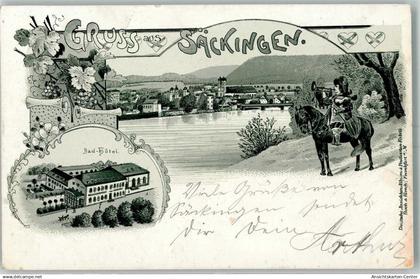 GRUSS aus SÄCKINGEN.
Bad-Hôtel.
Viele Grüße von
Säckingen sendet
dir Dein Arthur
© Ansichtskarten-Center
Ansichtskarten-Center